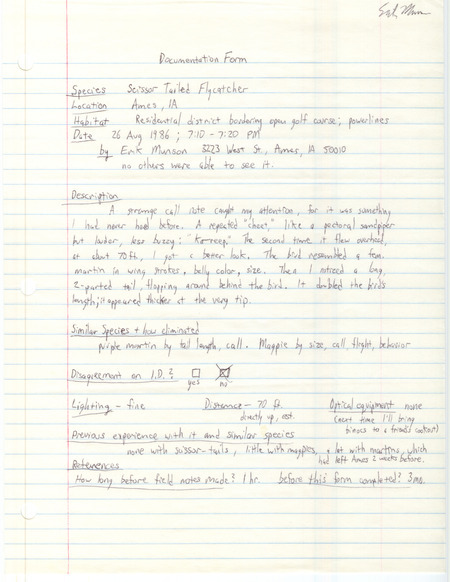 Documentation Form
Species Scissor Tailed Flycatcher
Location Ames, IA
Habitat Residential district bordering open golf course; powerlines
Date 26 Aug 1986; 7:10 - 7:20 PM
by Erik Munson 3223 West St., Ames, IA 50010
no others were able to see it.
Description
A strange call note caught my attention, for it was something
I had never heard before. A repeated "cheet," like a pectoral sandpiper
but louder, less buzzy; "Ka-reep." The second time it flew overhead,
at about 70 ft., I got a better look. The bird resembled a fem.
martin in wing strokes, belly color, size. Then I noticed a long,
2-parted tail, flopping around behind the bird. It doubled the bird's
length; it appeared thicker at the very tip.
Similar Species + how eliminated
purple martin by tail length, call. Magpie by size, call, flight, behavior
Disagreement on I.D.? yes no
Lighting - fine Distance - 70 ft. Optical equipment - none
directly up, est. (next time I'll bring
binocs to a friend's cookout)
Previous experience with it and similar species
none with scissor-tails, little with magpies, a lot with martins, which
had left Ames 2 weeks before.
References
How long before field notes made? 1 hr. before this form completed? 3 mo.